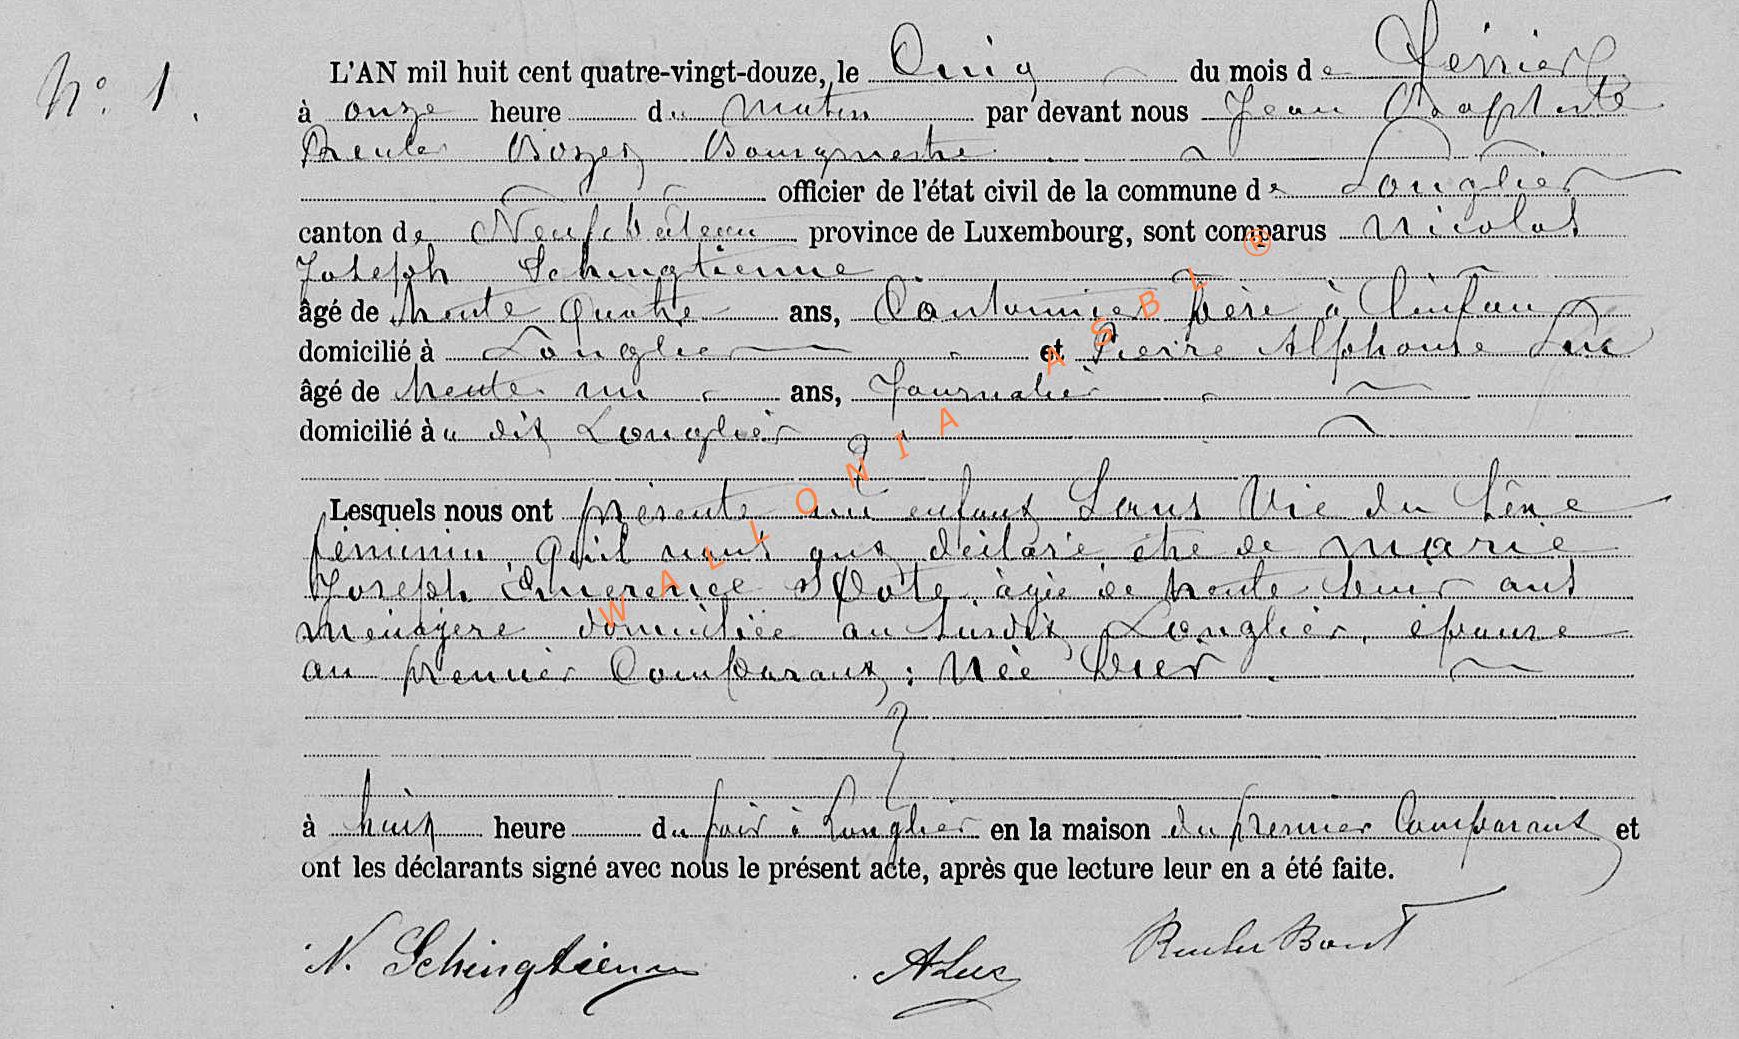 N° 1.
L'AN mil huit cent quatre-vingt-douze, le Cinq du mois de Février
à onze heure du matin par devant nous Jean Baptiste
Reuler Bourgmestre
officier de l'état civil de la commune de Longlier
canton de Neufchâteau province de Luxembourg, sont comparus Nicolas
Joseph Schingtienne
âgé de trente quatre ans, Cantonnier père à l'enfan
domicilié à Longlier et Pierre Alphonse Luc
âgé de trente un ans, Journalier
domicilié à u dit Longlier
Lesquels nous ont présenté un enfant Sans Vie du Sèxe
féminin qu'il nous ont déclaré être de Marie
Joseph Emerence âgée de trente ans
ménagère domiciliée au susdit Longlier, épouse
au premier Comparant ; Née hier
à huit heure du soir à Longlier en la maison du premier Comparant et
ont les déclarants signé avec nous le présent acte, après que lecture leur en a été faite.
N. Schingtienne ALuc Reuler
WALLONIA ASBL ®